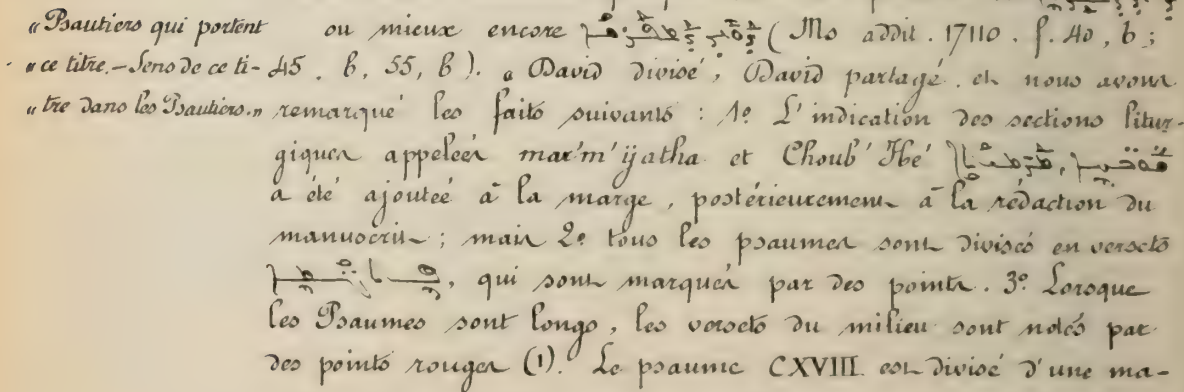 « Psautiers qui portent
« ce titre. – Sens de ce ti-
« tre dans les Psautiers. »
ou mieux encore (Ms addit. 17110. f. 40, b;
45. b, 55, b). « David divisé, David partagé. et nous avons
remarqué les faits suivants : 1º L'indication des sections litur-
giques appelées mar'm'ÿatha et Choub'Hé
a été ajoutée à la marge, postérieurement à la rédaction du
manuscrit ; mais 2º tous les psaumes sont divisés en versets
, qui sont marqués par des points. 3º Lorsque
les Psaumes sont longs, les versets du milieu sont notés par
des points rouges (1). Le psaume CXVIII est divisé d'une ma-